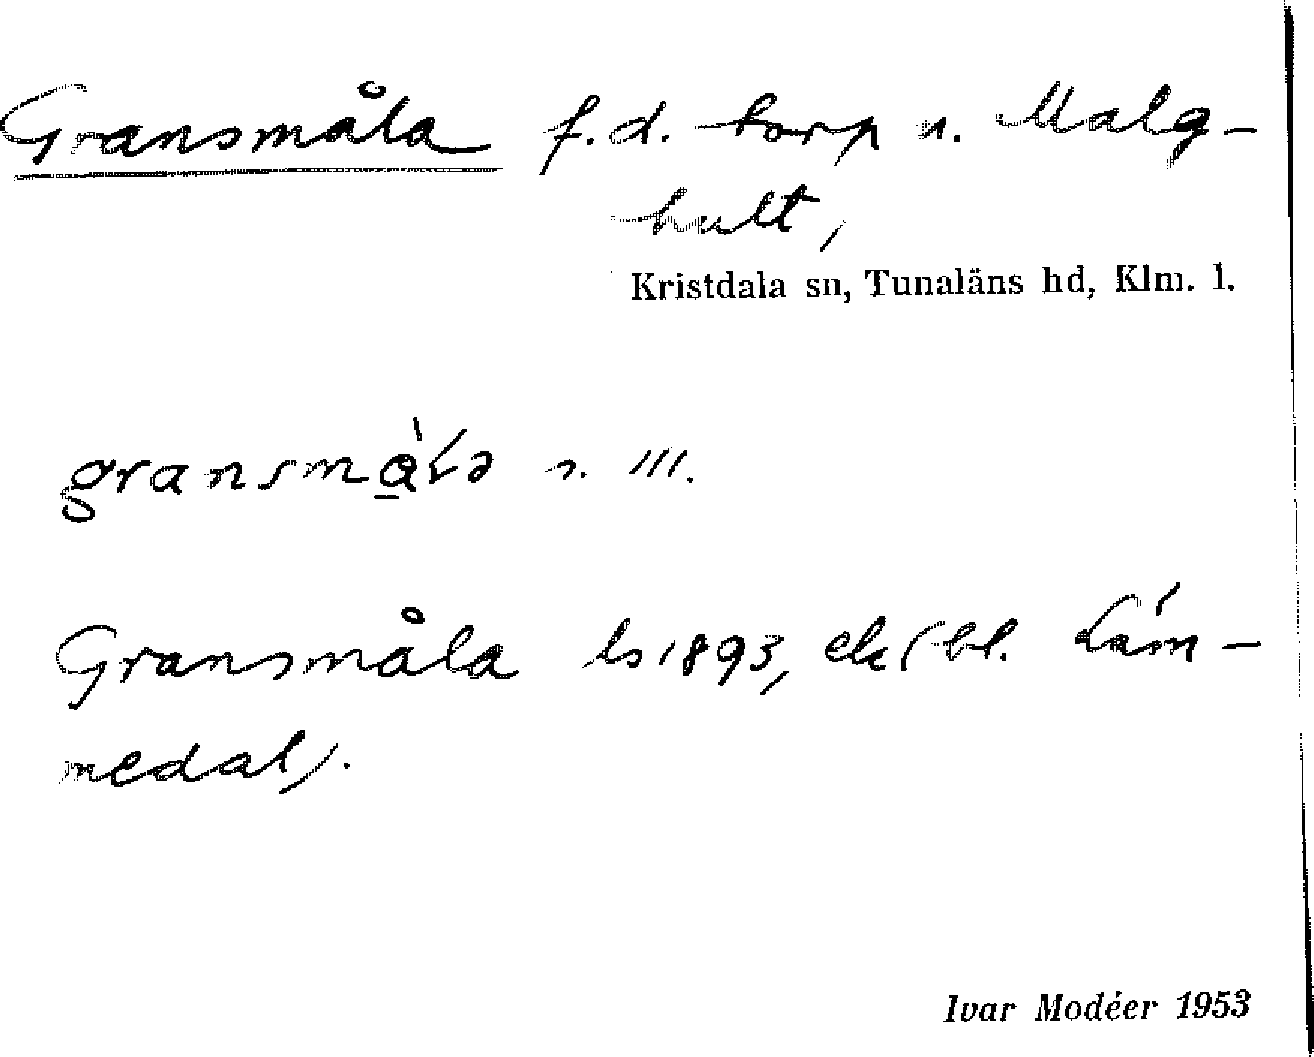 Gransmåla f.d. torp u. Malg-
hult,
Kristdala sn, Tunaläns hd, Klm. l.
gransmålə s. III.
Gransmåla ls 1893, ek (bl. Lám-
medal).
Ivar Modéer 1953